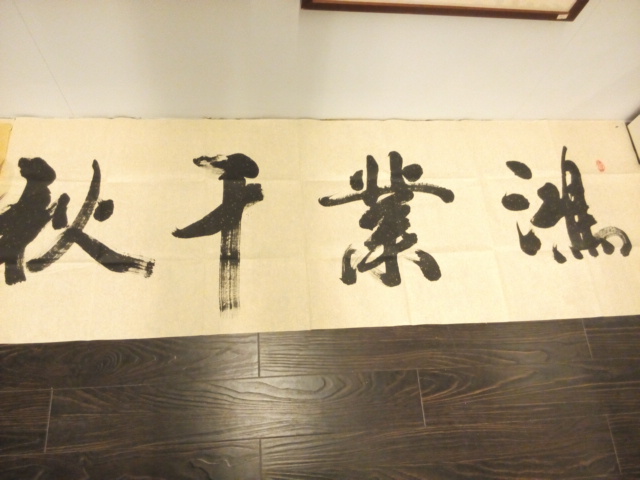 鴻業千秋